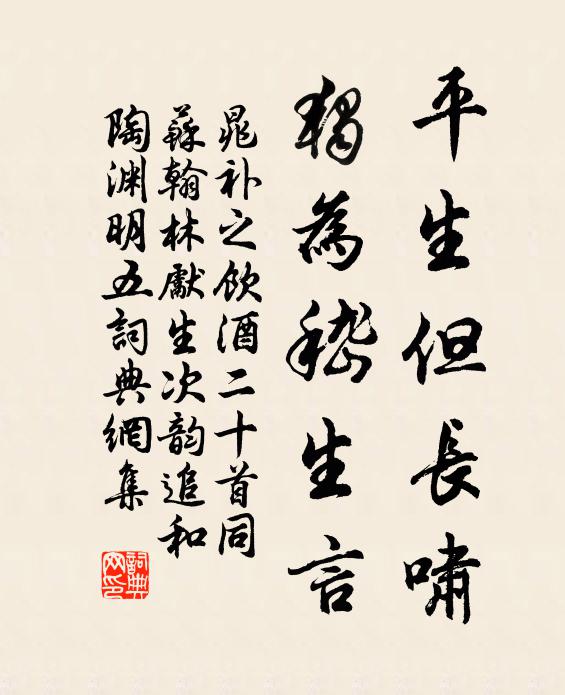 平生但長嘯
獨為嵇生言
晁补之飲酒二十首同
蘇翰林獻生次韵追和
陶渊明五詞典網集
詞典網印